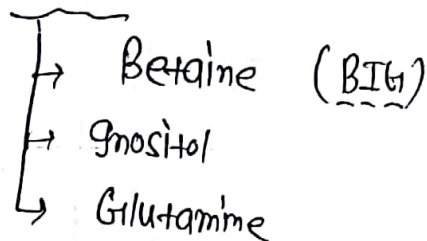 → Betaine (BIG)
→ Inositol
→ Glutamine